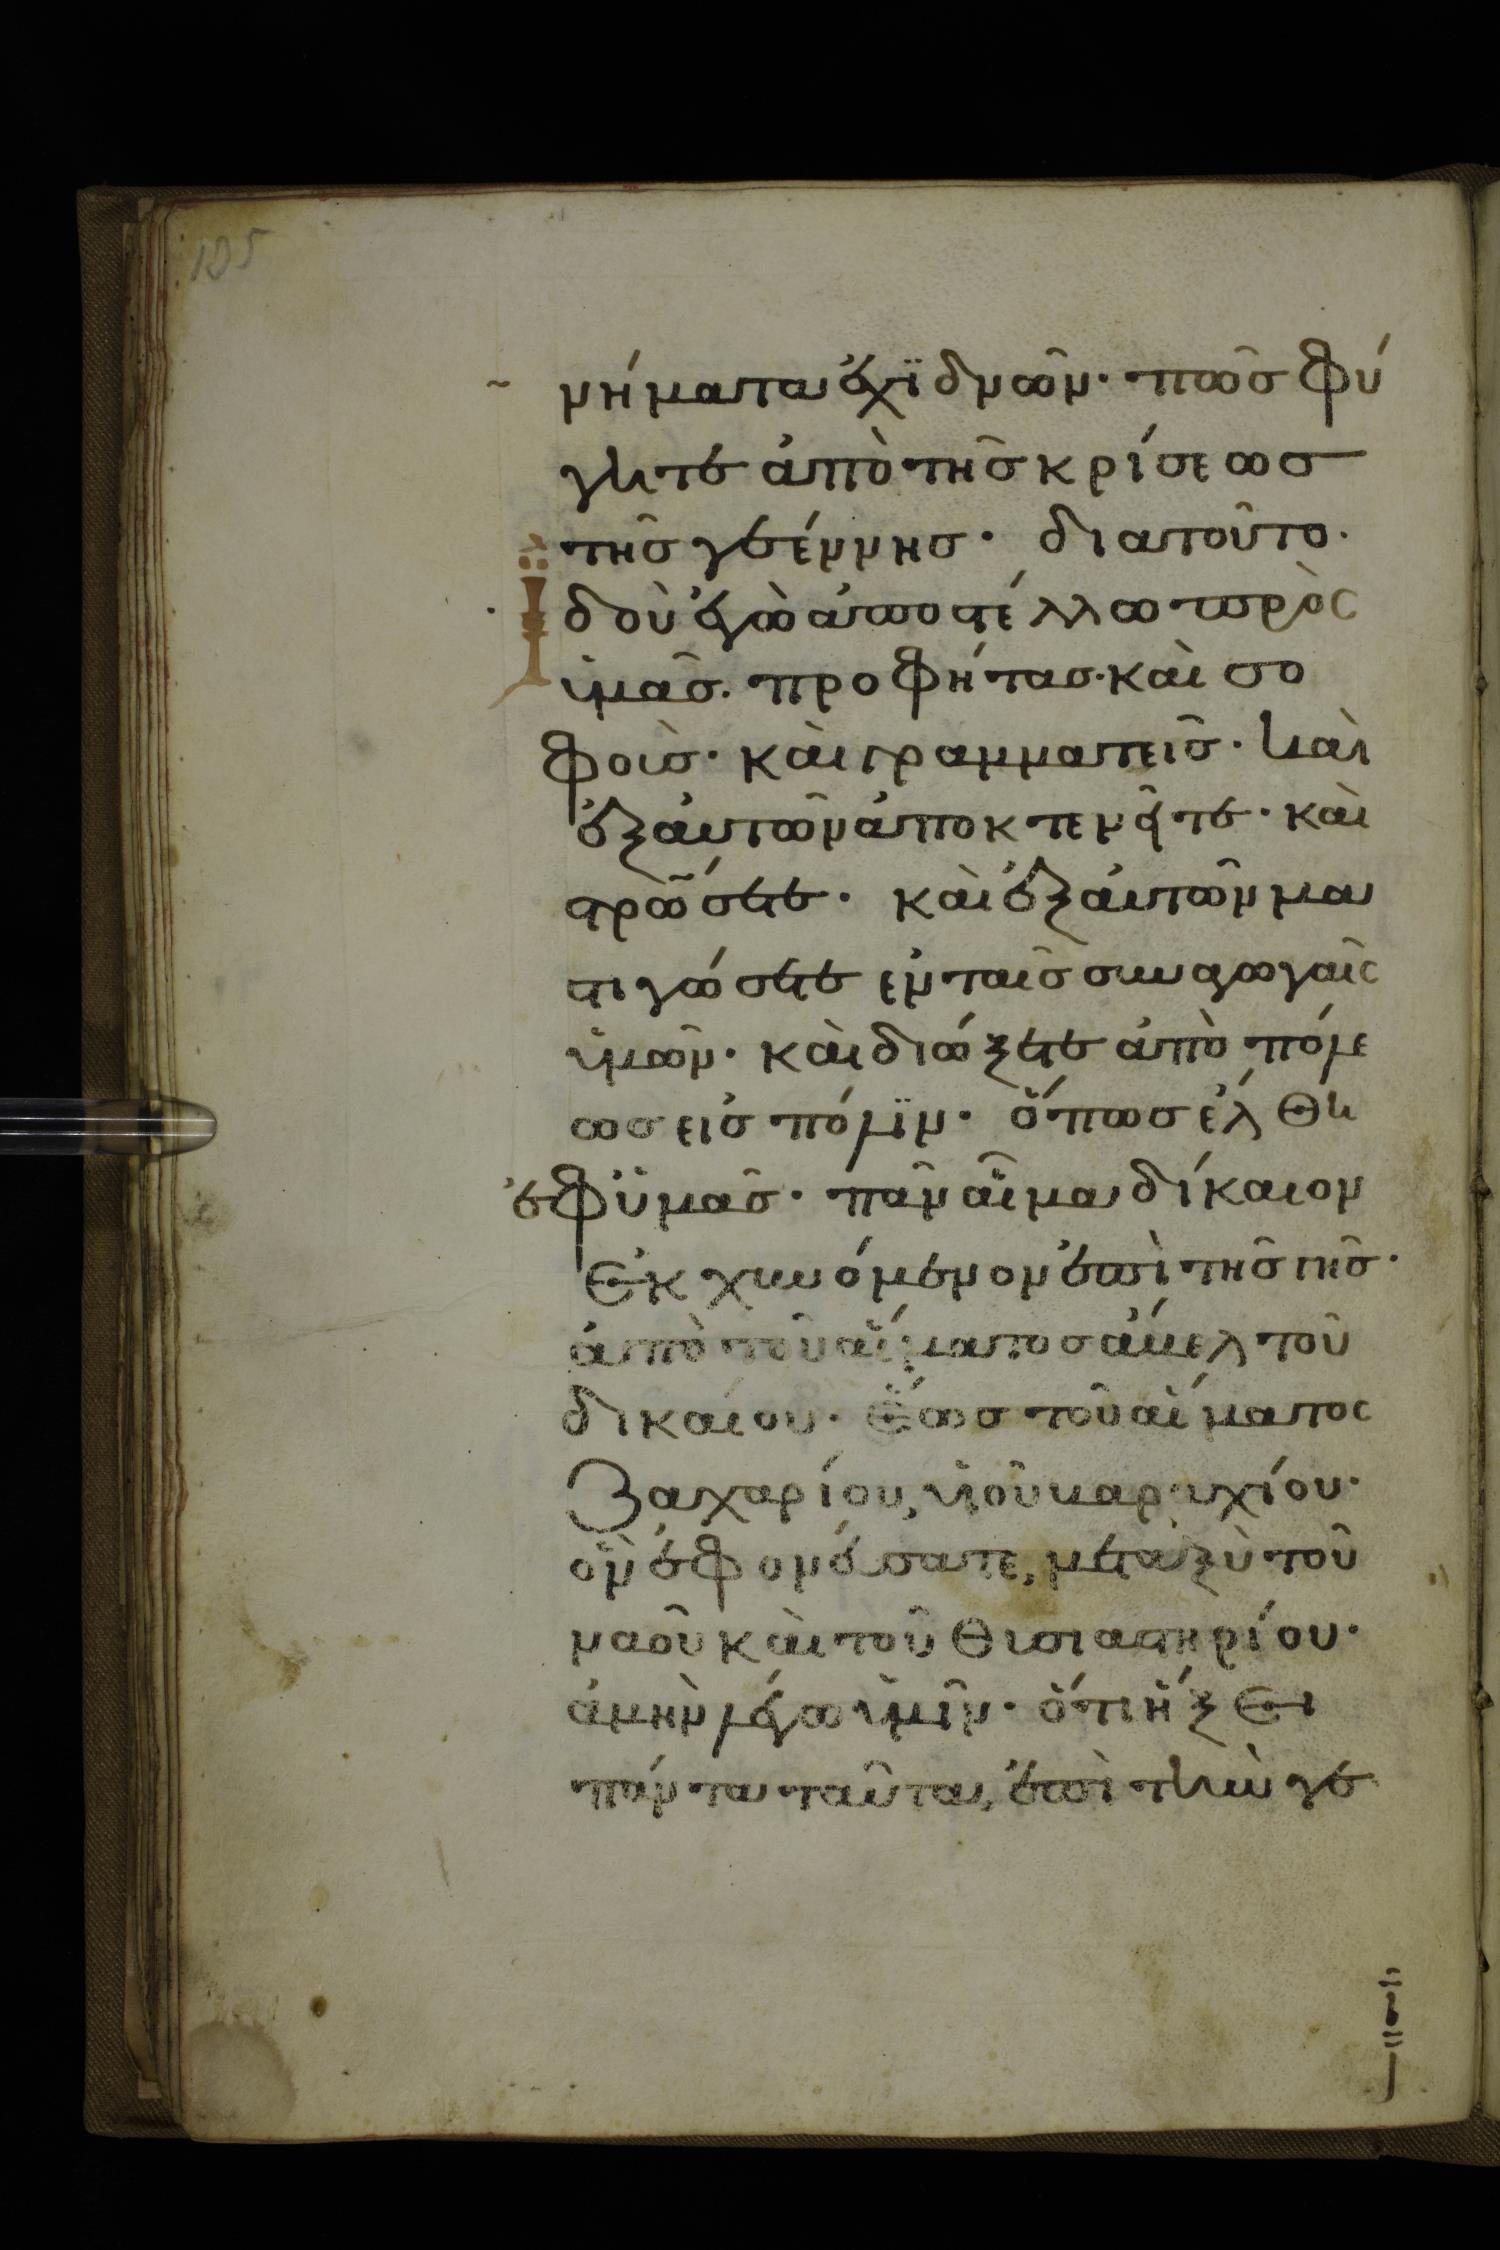 105
νήματα ἐχϊδνῶν· πῶς φύ
γητε ἀπὸ τῆς κρίσεως
τῆς γεέννης· διατοῦτο·
Ἰδοὺ ἐγὼ ἀποστέλλω πρὸς
ὑμᾶς· προφήτας· καὶ σο
φοὺς· καὶ γραμματεῖς· καὶ
ἐξ αὐτῶν ἀποκτενεῖτε· καὶ
στρώσετε· καὶ ἐξ αὐτῶν μα
στιγώσετε ἐν ταῖς συναγωγαῖς
ὑμῶν· καὶ διώξετε ἀπὸ πόλε
ως εἰς πόλϊν· ὅπως ἔλθη
ἐφ ὑμᾶς· πᾶν αἷμα δίκαιον
ἐκχυνόμενον ἐπὶ τῆς γῆς·
ἀπὸ τοῦ αἵματος ἅβελ τοῦ
δικαίου· ἕως τοῦ αἵματος
Ζαχαρίου, υἱοῦ βαραχίου·
ὃν ἐφονεύσατε, μεταξὺ τοῦ
ναοῦ καὶ τοῦ θυσιαστηρίου·
ἀμὴν λέγω ὑμῖν· ὅτι ἥξει
πάντα ταῦτα, ἐπὶ τὴν γε